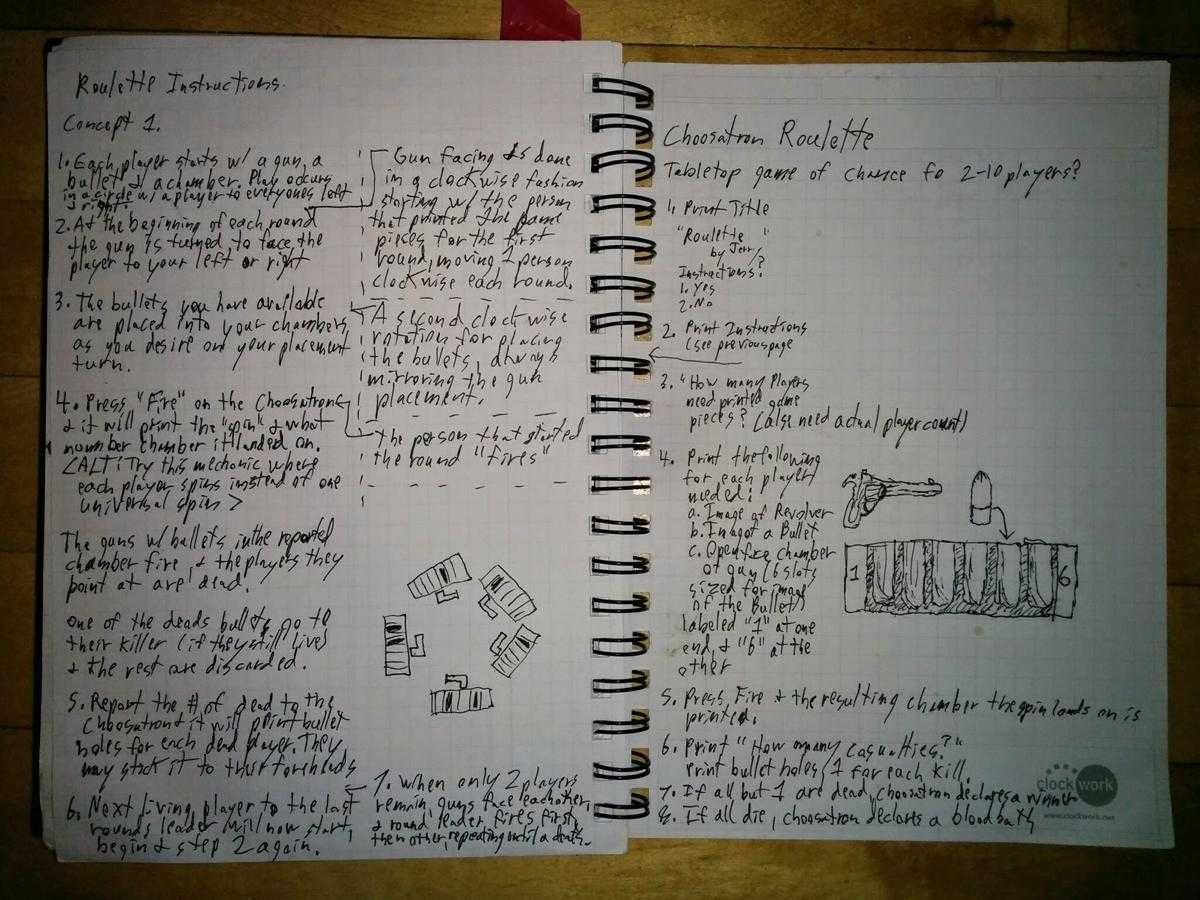 Roulette Instructions.
Concept 1.
1. Each player starts w/ a gun, a
bullet & a chamber. Play occurs
in a circle w/ a player to everyones left
& right.
2. At the beginning of each round
the gun is turned to face the
player to your left or right
3. The bullets you have available
are placed into your chambers
as you desire on your placement
turn.
4. Press "Fire" on the Choosatron
& it will print the "spin" & what
number chamber it landed on.
<ALT: Try this mechanic where
each player spins instead of one
universal spin>
The guns w/ bullets in the reported
chamber fire, & the players they
point at are dead.
one of the deads bullets go to
their killer (if they still live)
& the rest are discarded.
5. Report the # of dead to the
Choosatron & it will print bullet
holes for each dead player. They
may stick it to their foreheads
6. Next living player to the last
rounds leader will now start,
begin & step 2 again.
Gun facing is done
in a clockwise fashion
starting w/ the person
that printed the game
pieces for the first
round, moving 1 person
clockwise each round.
A second clockwise
rotation for placing
the bullets, always
mirroring the gun
placement.
The person that started
the round "fires"
7. When only 2 players
remain, guns face eachother
& round leader fires first,
then other, repeating until a death.
Choosatron Roulette
Tabletop game of chance fo 2-10 players?
1. Print Title
"Roulette "
by Jerry
Instructions?
1. Yes
2. No
2. Print Instructions
(see previous page
3. "How many Players
need printed game
pieces? (also need actual player count)
4. Print the following
for each player
needed:
a. Image of Revolver
b. Image of a Bullet
c. Open face chamber
of gun (6 slots
sized for image
of the Bullet)
labeled "1" at one
end, & "6" at the
other
1
6
5. Press Fire & the resulting chamber the spin lands on is
printed.
6. Print "How many casualties?"
Print bullet holes, 1 for each kill.
7. If all but 1 are dead, choosatron declares a winner
8. If all die, choosatron declares a bloodbath
clockwork
www.clockwork.net